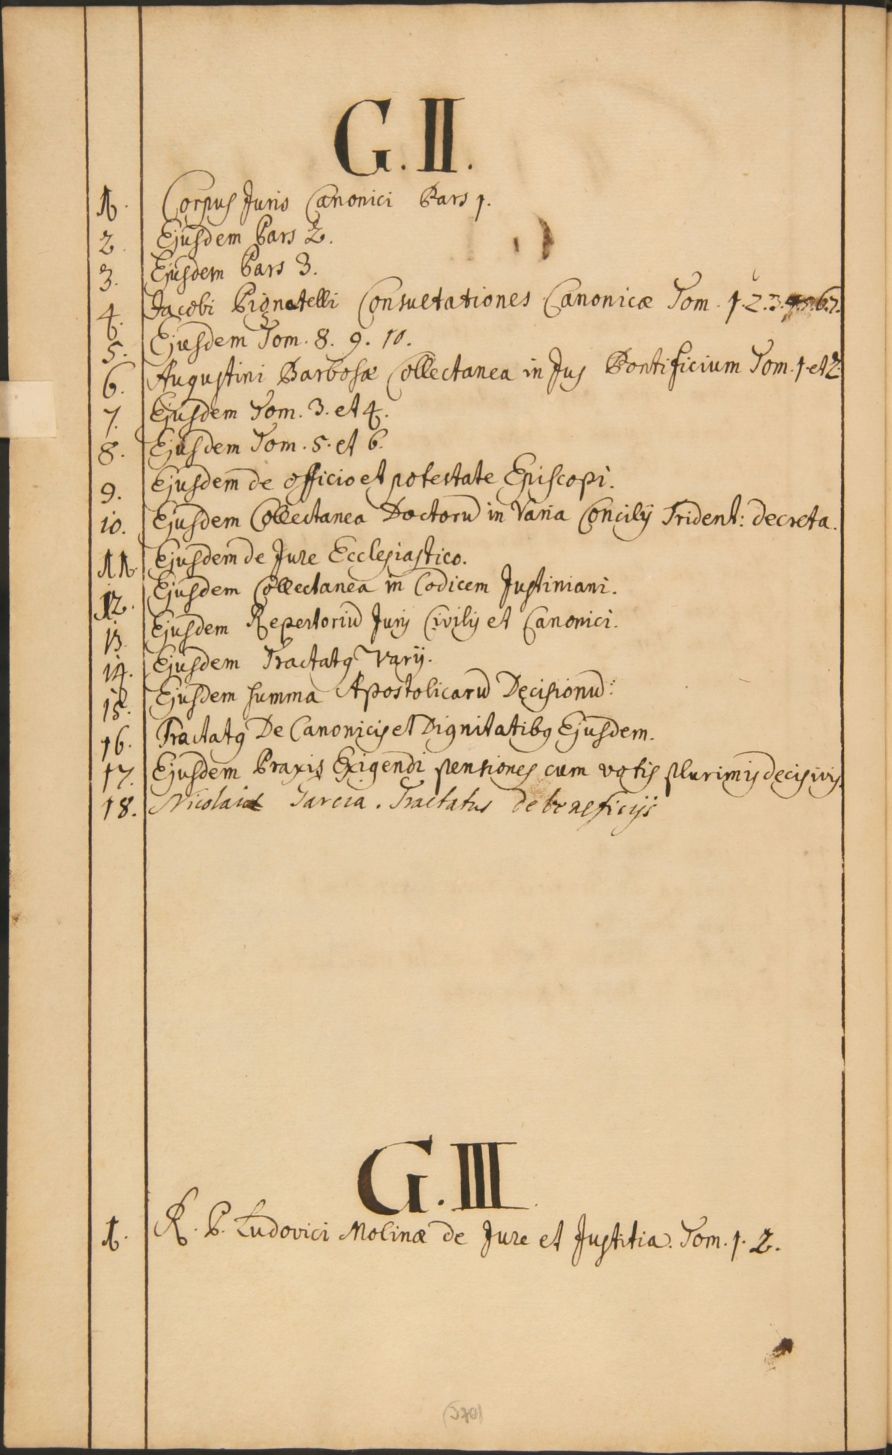 G. II.
1. Corpus Juris Canonici Pars 1.
2 Ejusdem Pars 2.
3. Ejusdem Pars 3.
4. Jacobi Pignatelli Consultationes Canonicæ Tom. 1. 2. 3. 4. 5. 6. 7.
5. Ejusdem Tom. 8. 9. 10.
6. Augustini Barbosæ Collectanea in Jus Pontificium Tom. 1 et 2
7. Ejusdem Tom. 3. et 4.
8. Ejusdem Tom. 5. et 6.
9. Ejusdem de officio et potestate Episcopi.
10. Ejusdem Collectanea Doctorū in Varia Concilij Trident: decreta.
11 Ejusdem de Jure Ecclesiastico.
12. Ejusdem Collectanea in Codicem Justiniani.
13 Ejusdem Repertoriū Juris Civilis et Canonici.
14. Ejusdem Tractatꝰ Varij.
15. Ejusdem summa Apostolicarū Decisionū:
16. Tractatꝰ De Canonicis et Dignitatibꝰ Ejusdem.
17. Ejusdem Praxis Exigendi pensiones cum votis plurimis decisivis.
18. Nicolai Garcia. Tractatus de beneficijs
G. III
1. R. P. Ludovici Molinæ de Jure et Justitia. Tom. 1. 2.